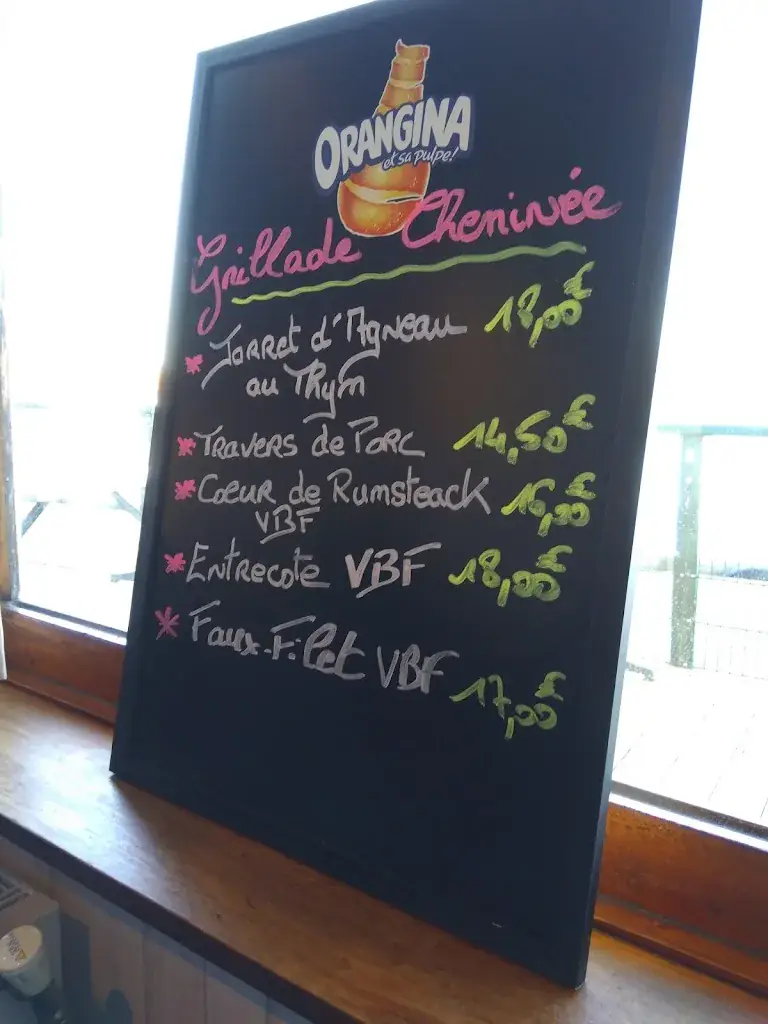 ORANGINA
et sa pulpe!
Grillade Cheminée
* Jarret d'Agneau 18,00€
au Thym
* Travers de Porc 14,50€
* Coeur de Rumsteack 16,00€
VBF
* Entrecote VBF 18,00€
* Faux-Filet VBF 17,00€